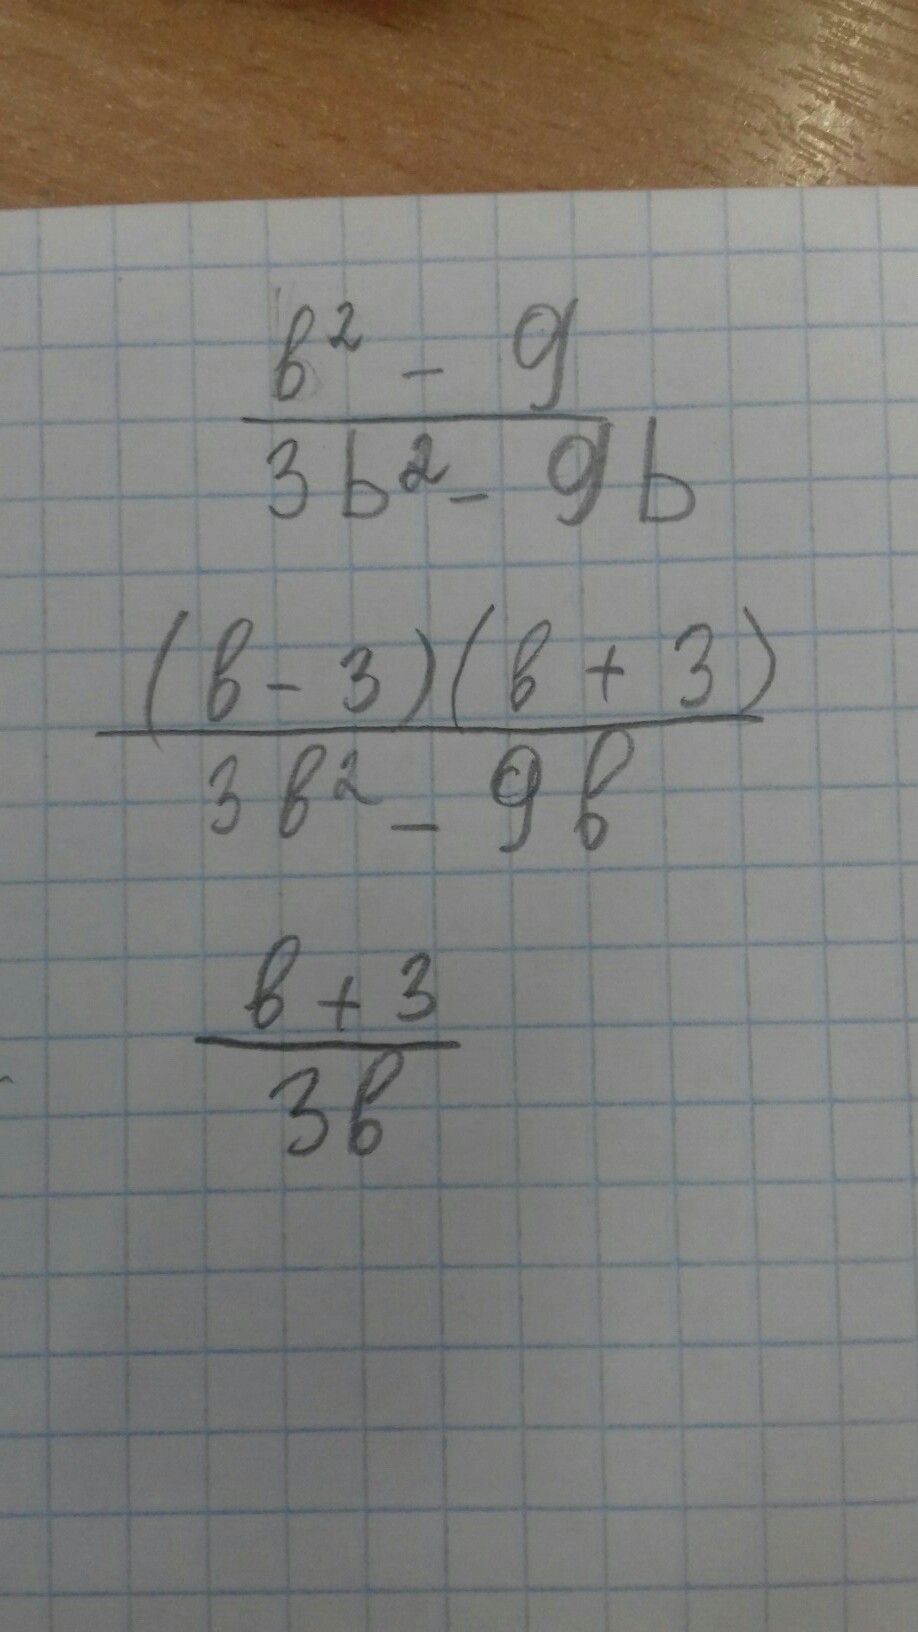 b² - 9
3b² - 9b
(b - 3)(b + 3)
3b² - 9b
b + 3
3b